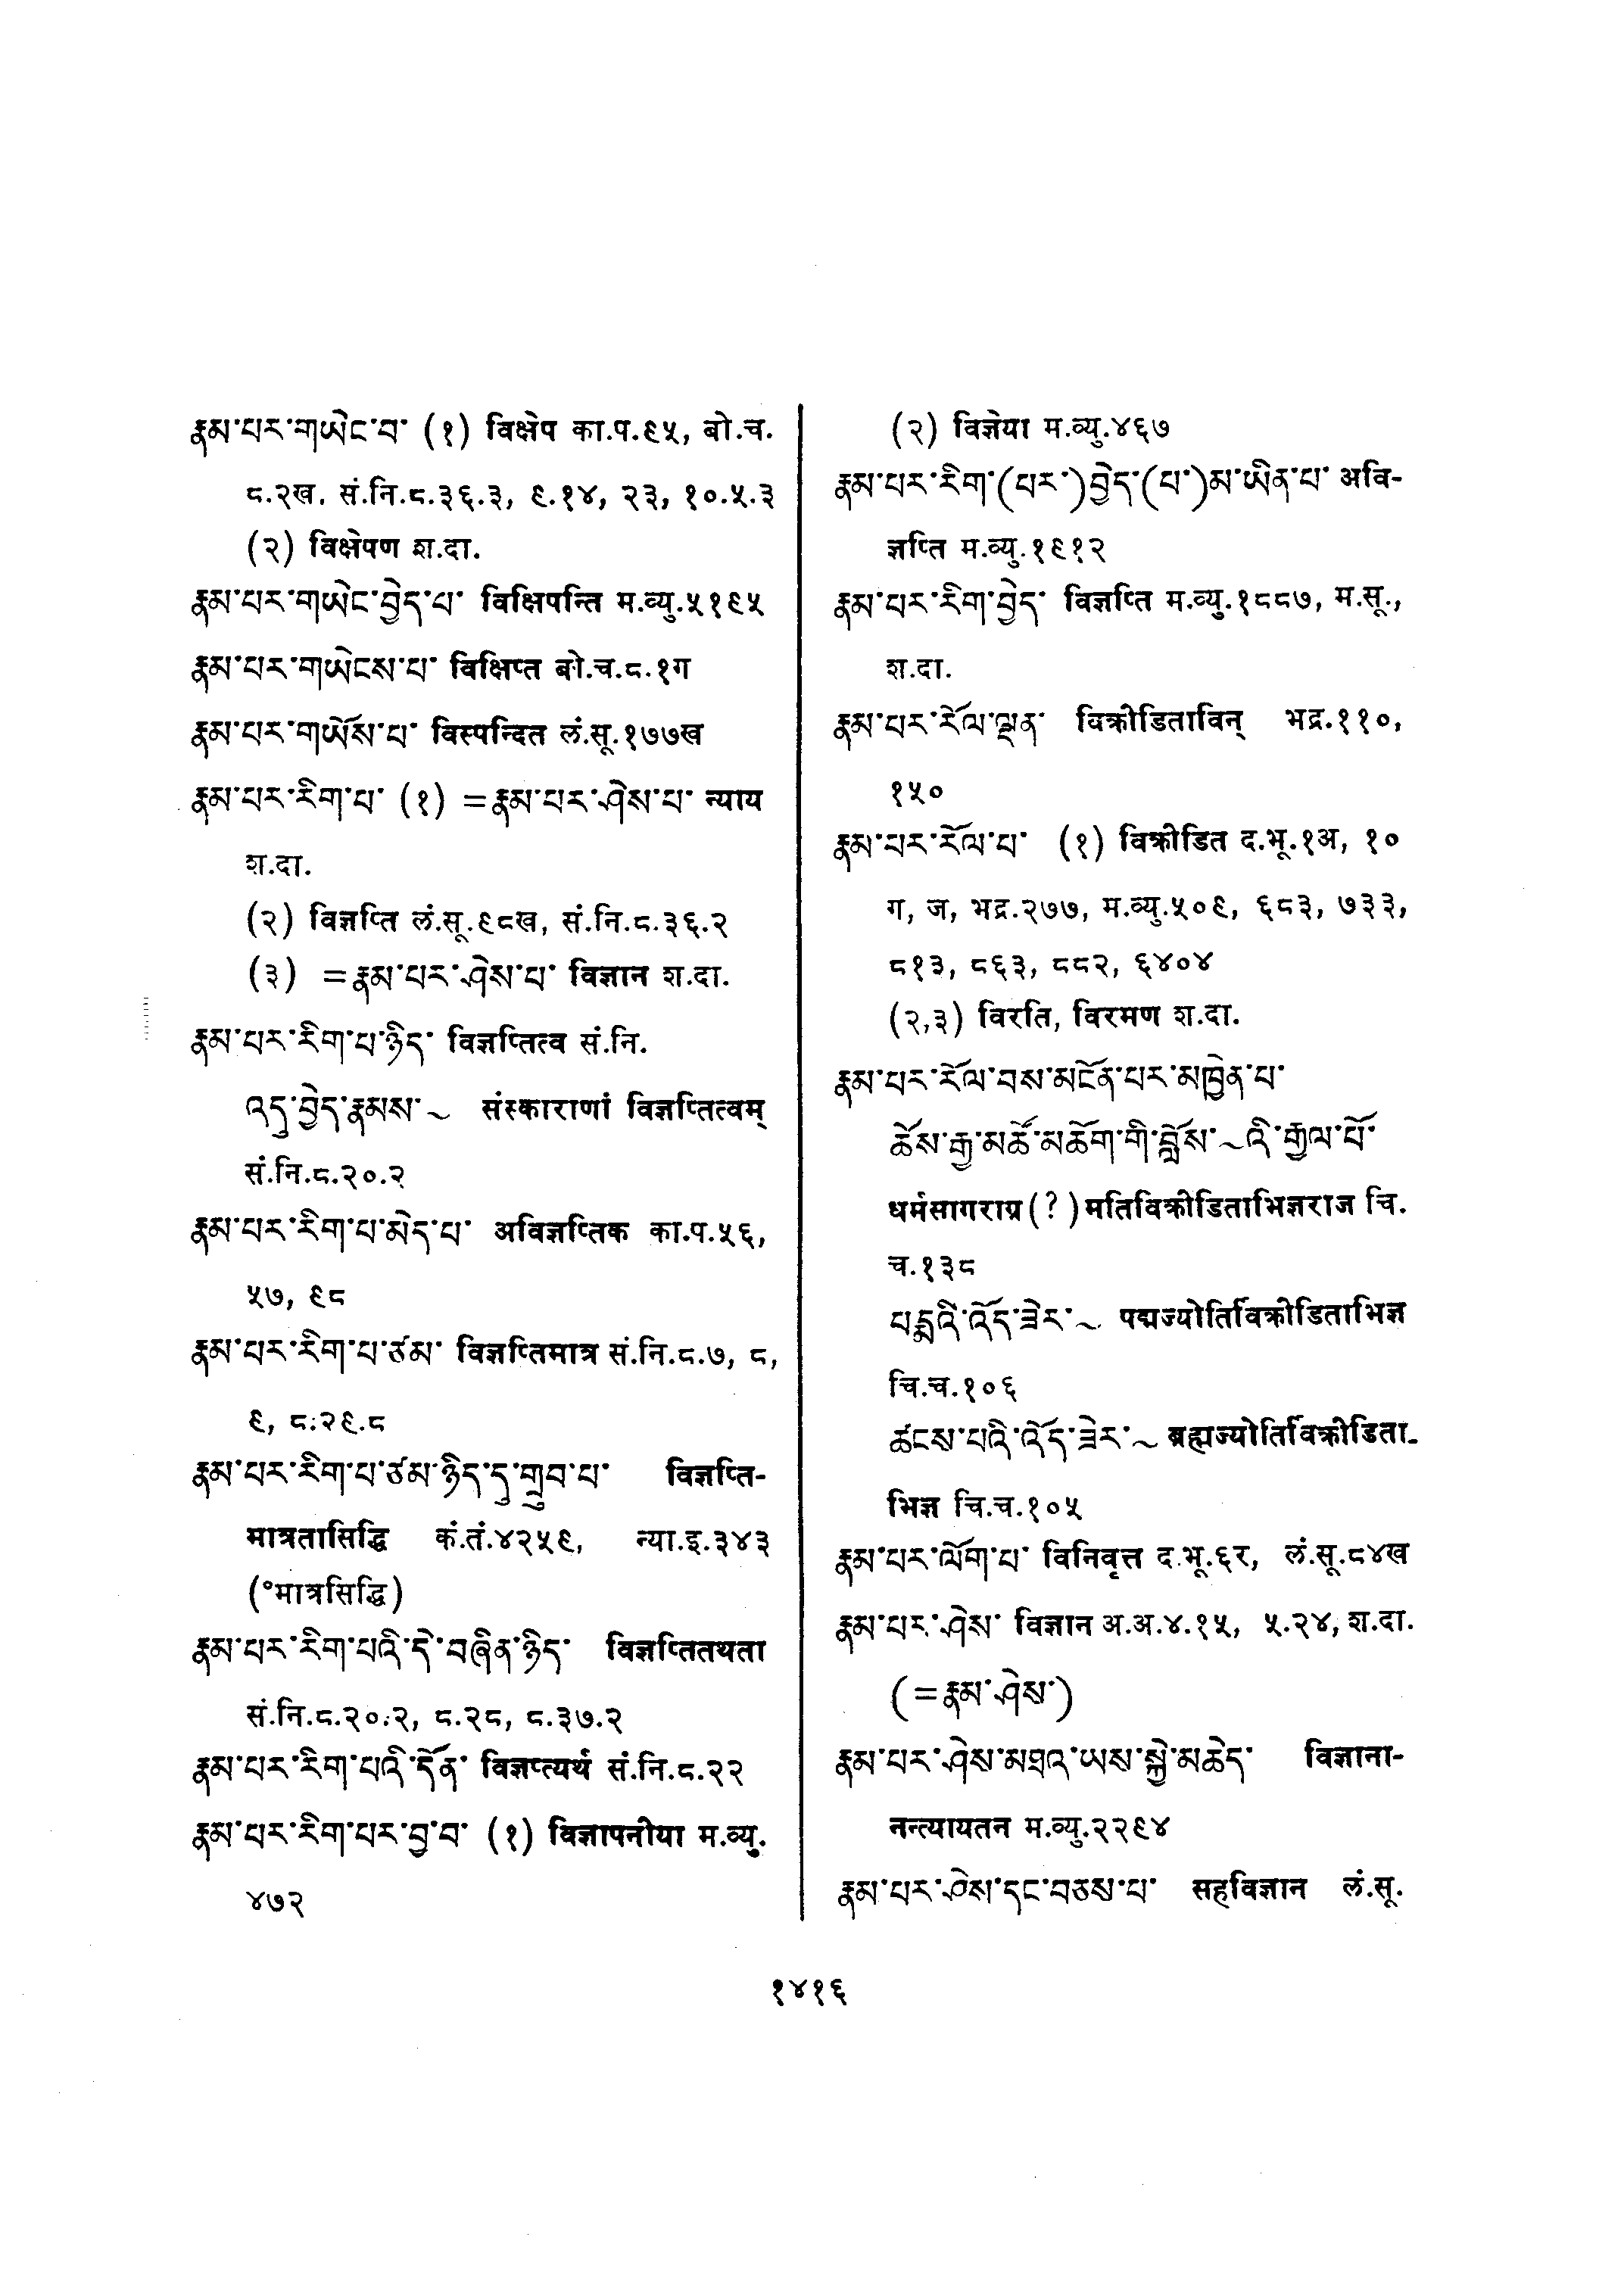 རྣམ་པར་གཡེང་བ་ (१) विक्षेप का.प.९५, बो.च.
८.२ख. सं.नि.८.३६.३, ९.१४, २३, १०.५.३
(२) विक्षेपण श.दा.
རྣམ་པར་གཡེང་བྱེད་པ་ विक्षिपन्ति म.व्यु.५१९५
རྣམ་པར་གཡེངས་པ་ विक्षिप्त बो.च.८.१ग
རྣམ་པར་གཡོས་པ་ विस्पन्दित लं.सू.१७७ख
རྣམ་པར་རིག་པ་ (१) =རྣམ་པར་ཤེས་པ་ न्याय
श.दा.
(२) विज्ञप्ति लं.सू.९८ख, सं.नि.८.३६.२
(३) =རྣམ་པར་ཤེས་པ་ विज्ञान श.दा.
རྣམ་པར་རིག་པ་ཉིད་ विज्ञप्तित्व सं.नि.
འདུ་བྱེད་རྣམས་~ संस्काराणां विज्ञप्तित्वम्
सं.नि.८.२०.२
རྣམ་པར་རིག་པ་མེད་པ་ अविज्ञप्तिक का.प.५६,
५७, ९८
རྣམ་པར་རིག་པ་ཙམ་ विज्ञप्तिमात्र सं.नि.८.७, ८,
९, ८.२९.८
རྣམ་པར་རིག་པ་ཙམ་ཉིད་དུ་གྲུབ་པ་ विज्ञप्ति-
मात्रतासिद्धि कं.तं.४२५९, न्या.इ.३४३
(°मात्रसिद्धि)
རྣམ་པར་རིག་པའི་དེ་བཞིན་ཉིད་ विज्ञप्तितथता
सं.नि.८.२०.२, ८.२८, ८.३७.२
རྣམ་པར་རིག་པའི་དོན་ विज्ञप्त्यर्थ सं.नि.८.२२
རྣམ་པར་རིག་པར་བྱ་བ་ (१) विज्ञापनीया म.व्यु.
४७२
(२) विज्ञेया म.व्यु.४६७
རྣམ་པར་རིག་(པར་)བྱེད་(པ་)མ་ཡིན་པ་ अवि-
ज्ञप्ति म.व्यु.१९१२
རྣམ་པར་རིག་བྱེད་ विज्ञप्ति म.व्यु.१८८७, म.सू.,
श.दा.
རྣམ་པར་རོལ་ལྡན་ विक्रीडिताविन् भद्र.११०,
१५०
རྣམ་པར་རོལ་པ་ (१) विक्रीडित द.भू.१अ, १०
ग, ज, भद्र.२७७, म.व्यु.५०९, ६८३, ७३३,
८१३, ८६३, ८८२, ६४०४
(२,३) विरति, विरमण श.दा.
རྣམ་པར་རོལ་བས་མངོན་པར་མཁྱེན་པ་
ཆོས་རྒྱ་མཚོ་མཆོག་གི་བློས་~འི་རྒྱལ་པོ་
धर्मसागराग्र(?)मतिविक्रीडिताभिज्ञराज चि.
च.१३८
པདྨའི་འོད་ཟེར་~ पद्मज्योतिर्विक्रीडिताभिज्ञ
चि.च.१०६
ཚངས་པའི་འོད་ཟེར་~ ब्रह्मज्योतिर्विक्रीडिता-
भिज्ञ चि.च.१०५
རྣམ་པར་ལོག་པ་ विनिवृत्त द.भू.६र, लं.सू.८४ख
རྣམ་པར་ཤེས་ विज्ञान अ.अ.४.१५, ५.२४, श.दा.
(=རྣམ་ཤེས་)
རྣམ་པར་ཤེས་མཐའ་ཡས་སྐྱེ་མཆེད་ विज्ञाना-
नन्त्यायतन म.व्यु.२२९४
རྣམ་པར་ཤེས་དང་བཅས་པ་ सहविज्ञान लं.सू.
१४१६